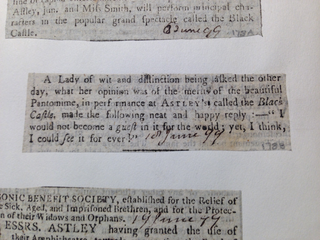 Astley, Jun. and Miss Smith, will perform principal cha-
racters in the popular grand spectacle called the Black
Castle.
June 99
A Lady of wit and distinction being asked the other
day, what her opinion was of the merits of the beautiful
Pantomime, in perf rmance at ASTLEY's called the Black
Castle, made the following neat and happy reply:—"I
would not become a guest in it for the world; yet, I think,
I could see it for ever!" 18 June 99
SONIC BENEFIT SOCIETY, established for the Relief of
Sick, Aged, and Imprisoned Brethren, and for the Protec-
on of their Widows and Orphans. 19 June 99
ESSRS. ASTLEY having granted the use of
their Amphitheatre